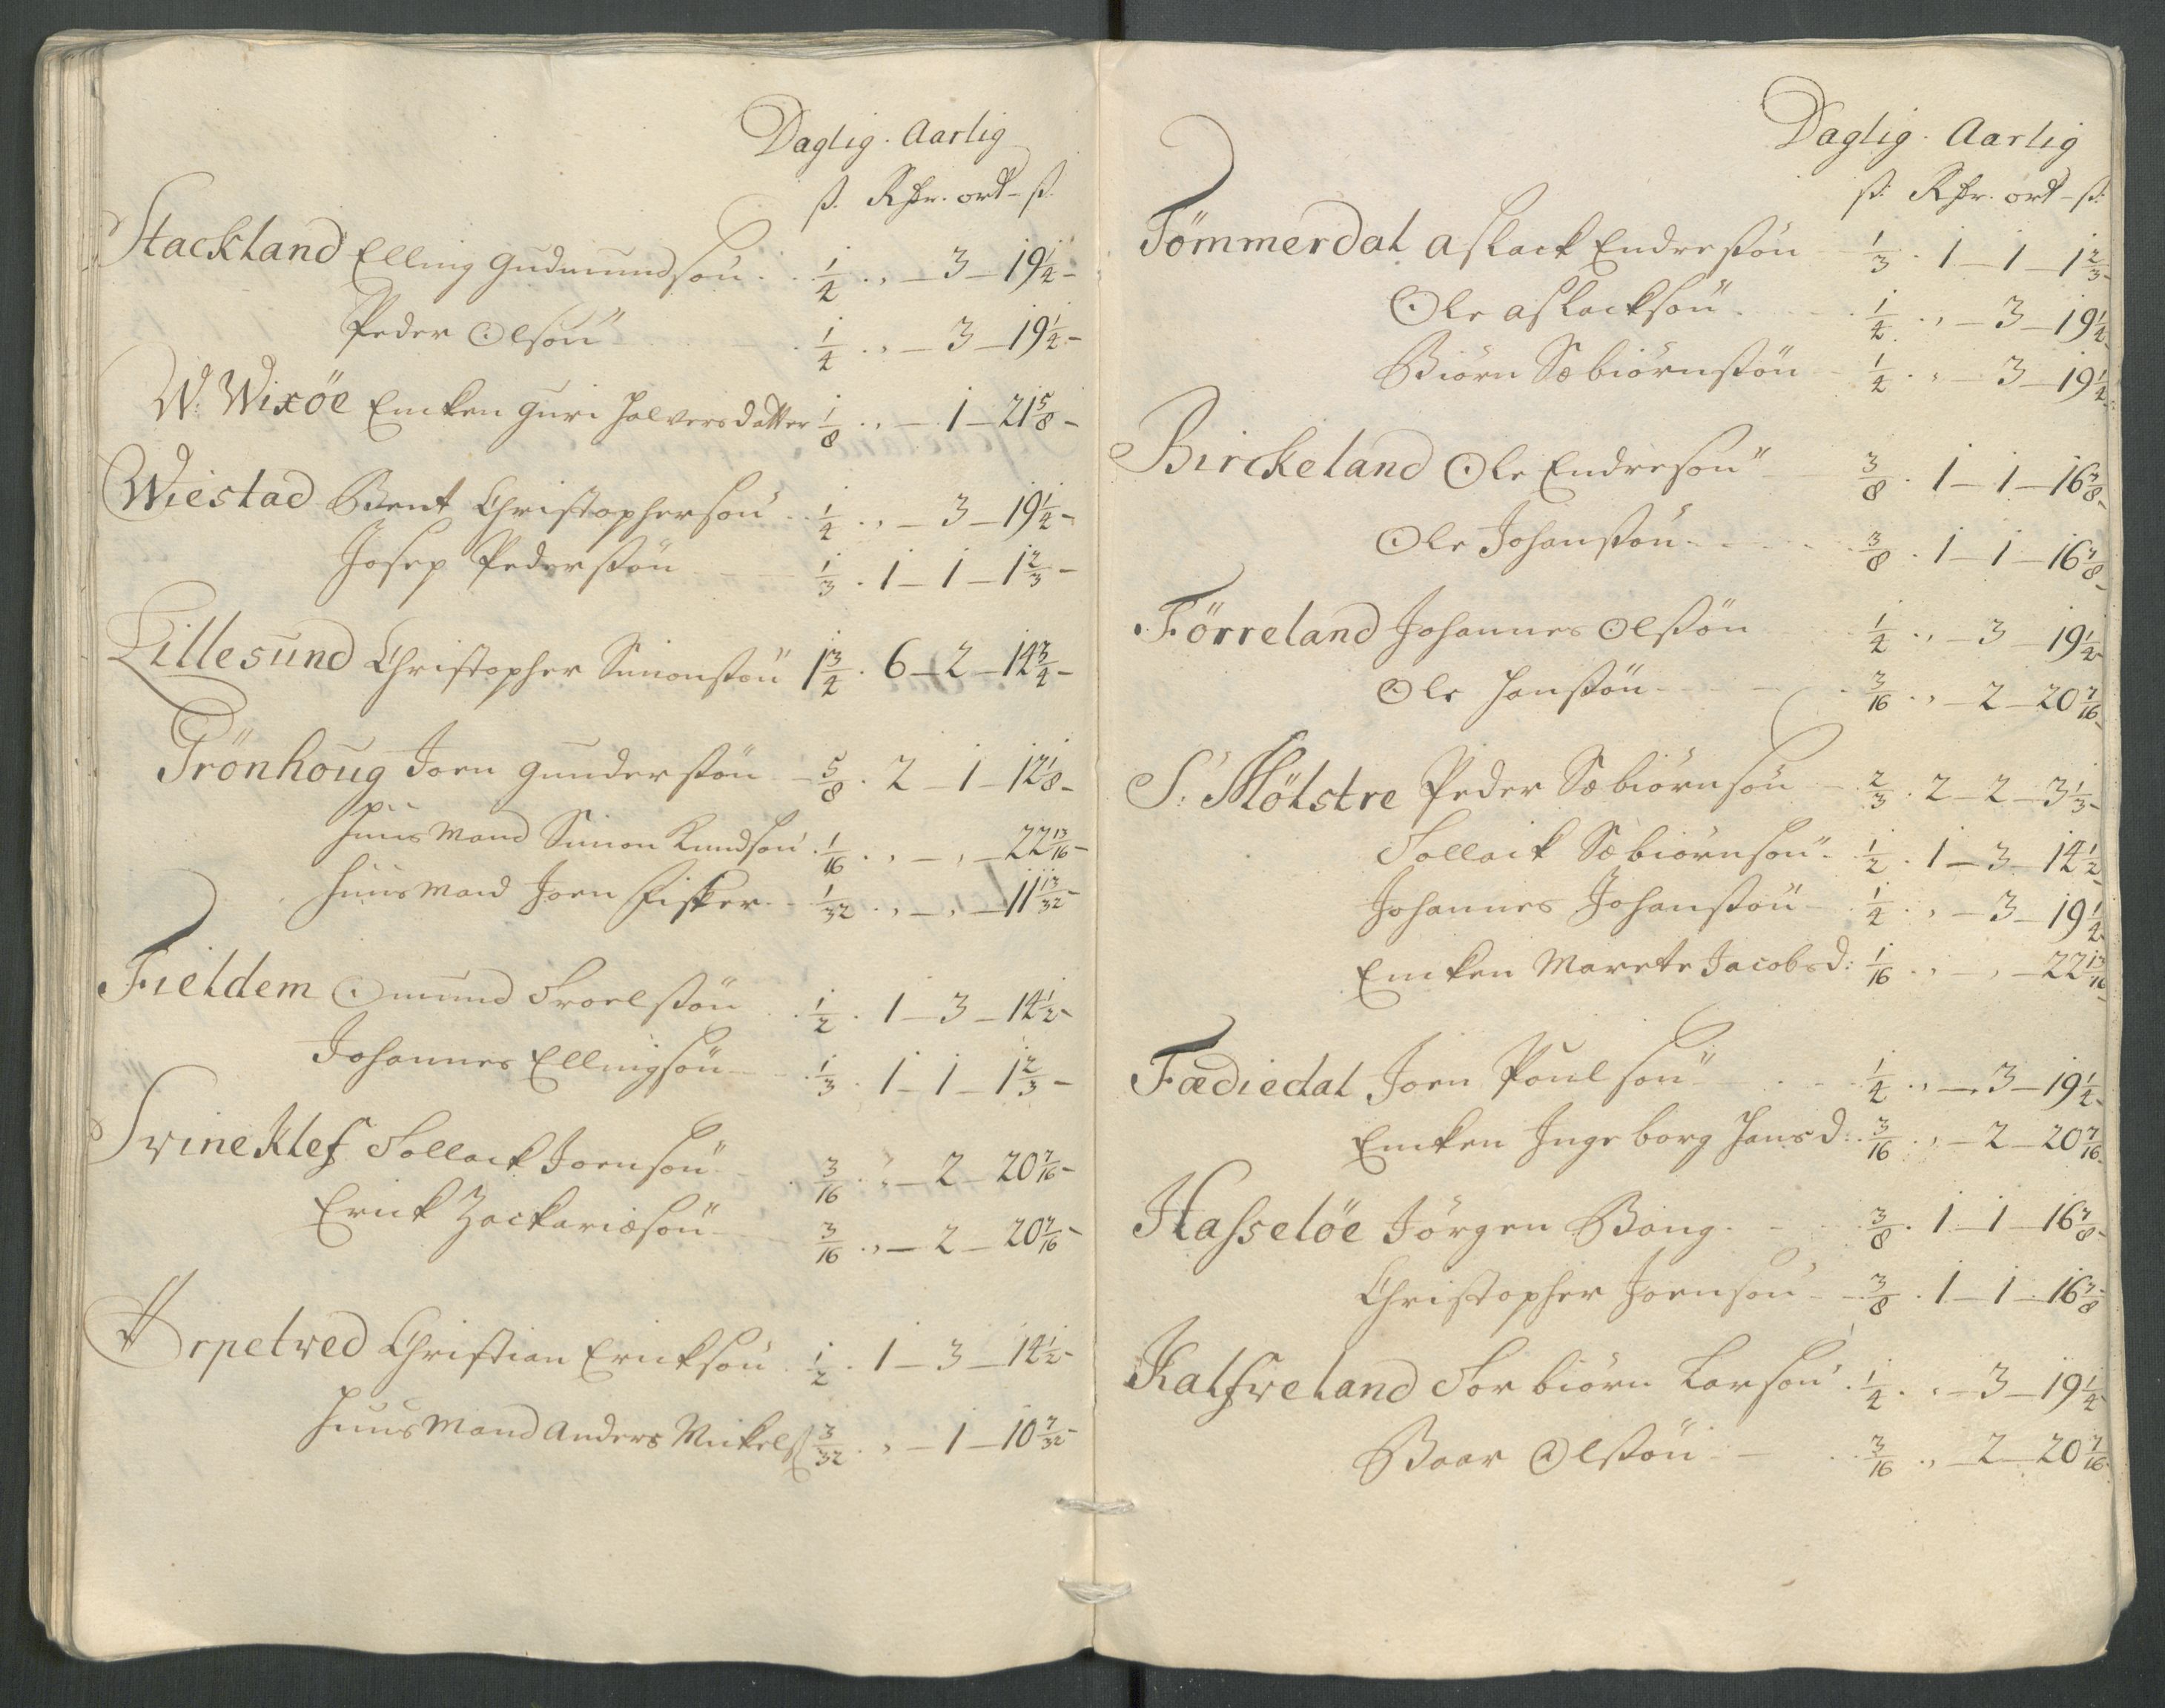 Daglig. Aarlig
ß. Rdr. ort - ß.
Stackland Elling Gudmundsøn . . 1/4 . „ — 3 — 19 1/4 -
Peder Olsøn . 1/4 . „ — 3 — 19 1/4 -
W: Wixöe Encken Guri Halversdatter 1/8 . „ — 1 — 21 5/8 -
Wiestad Bent Christophersøn . . 1/4 . „ — 3 — 19 1/4 -
Josep Pederssøn 1/3 . 1 — 1 — 1 2/3 -
Lillesund Christopher Simonssøn 1 3/4 . 6 — 2 — 14 3/4 -
Trönhoug Joen Gunderssøn — 5/8 . 2 — 1 — 12 1/8 -
Huusmand Simon Knudsøn . 1/16 . „ — „ — 22 13/16 -
Huusmand Joen Fisker . . 1/32 . „ — „ — 11 13/32 -
Fieldem Omund Troelssøn . . 1/2 . 1 — 3 — 14 1/2 -
Johannes Ellingsøn . 1/3 . 1 — 1 — 1 2/3 -
Svineklef Tollack Joensøn . 3/16 . „ — 2 — 20 7/16 -
Erick Zackariæsøn 3/16 . „ — 2 — 20 7/16 -
Arpetved Christian Ericksøn . 1/2 . 1 — 3 — 14 1/2 -
Huusmand Anders Mickelß 3/32 . „ — 1 — 10 7/32 -
Daglig. Aarlig
ß. Rdr. ort - ß.
Tömmerdal Aslack Endressøn 1/3 . 1 — 1 — 1 2/3 -
Ole Aslacksøn . 1/4 . „ — 3 — 19 1/4
Biörn Sæbiörnssøn 1/4 . „ — 3 — 19 1/4
Birckeland Ole Endresøn 3/8 . 1 — 1 — 16 3/8 -
Ole Johanssøn . . . 3/8 . 1 — 1 — 16 3/8 -
Förreland Johannes Olssøn 1/4 . „ — 3 — 19 1/4
Ole Hanssøn . . 3/16 . „ — 2 — 20 7/16 -
S: Mölstre Peder Sæbiörnsøn — 2/3 . 2 — 2 — 3 1/3 -
Tollack Sæbiörnsøn . 1/2 . 1 — 3 — 14 1/2
Johannes Johanssøn 1/4 . „ — 3 — 19 1/4
Encken Marete Jacobsd: 1/16 . „ — „ — 22 13/16
Fædiedal Joen Poulsøn . . 1/4 . „ — 3 — 19 1/4 -
Encken Ingeborg Hansd: 3/16 . „ — 2 — 20 7/16 -
Hasselöe Jörgen Bang . . 3/8 . 1 — 1 — 16 3/8 -
Christopher Joensøn . 3/8 . 1 — 1 — 16 3/8
Kalfveland Torbiörn Larsøn . 1/4 . „ — 3 — 19 1/4
Baar Olssøn . . 3/16 . „ — 2 — 20 7/16